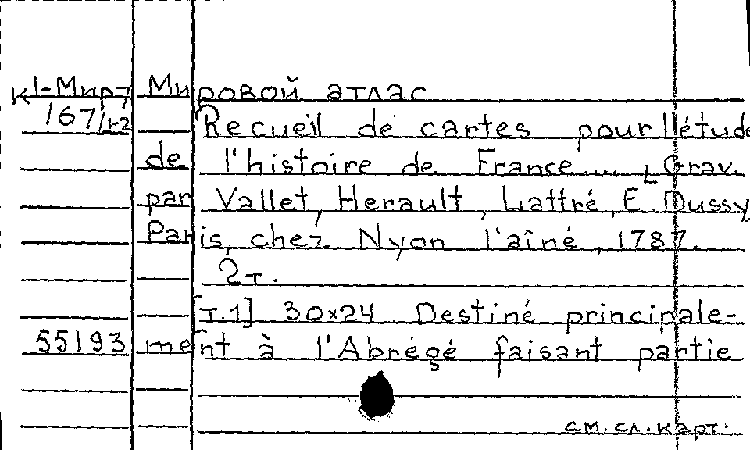 К1-Мир7 Мировой атлас
167/12 Recueil de cartes pour l'étude
de l'histoire de France... [Grav.
par Vallet, Herault, Lattré, E. Dussy
Paris, chez Nyon l'aîné, 1787.
2т.
[т.1] 30×24 Destiné principale-
55193 ment à l'Abrégé faisant partie
см. сл. карт.